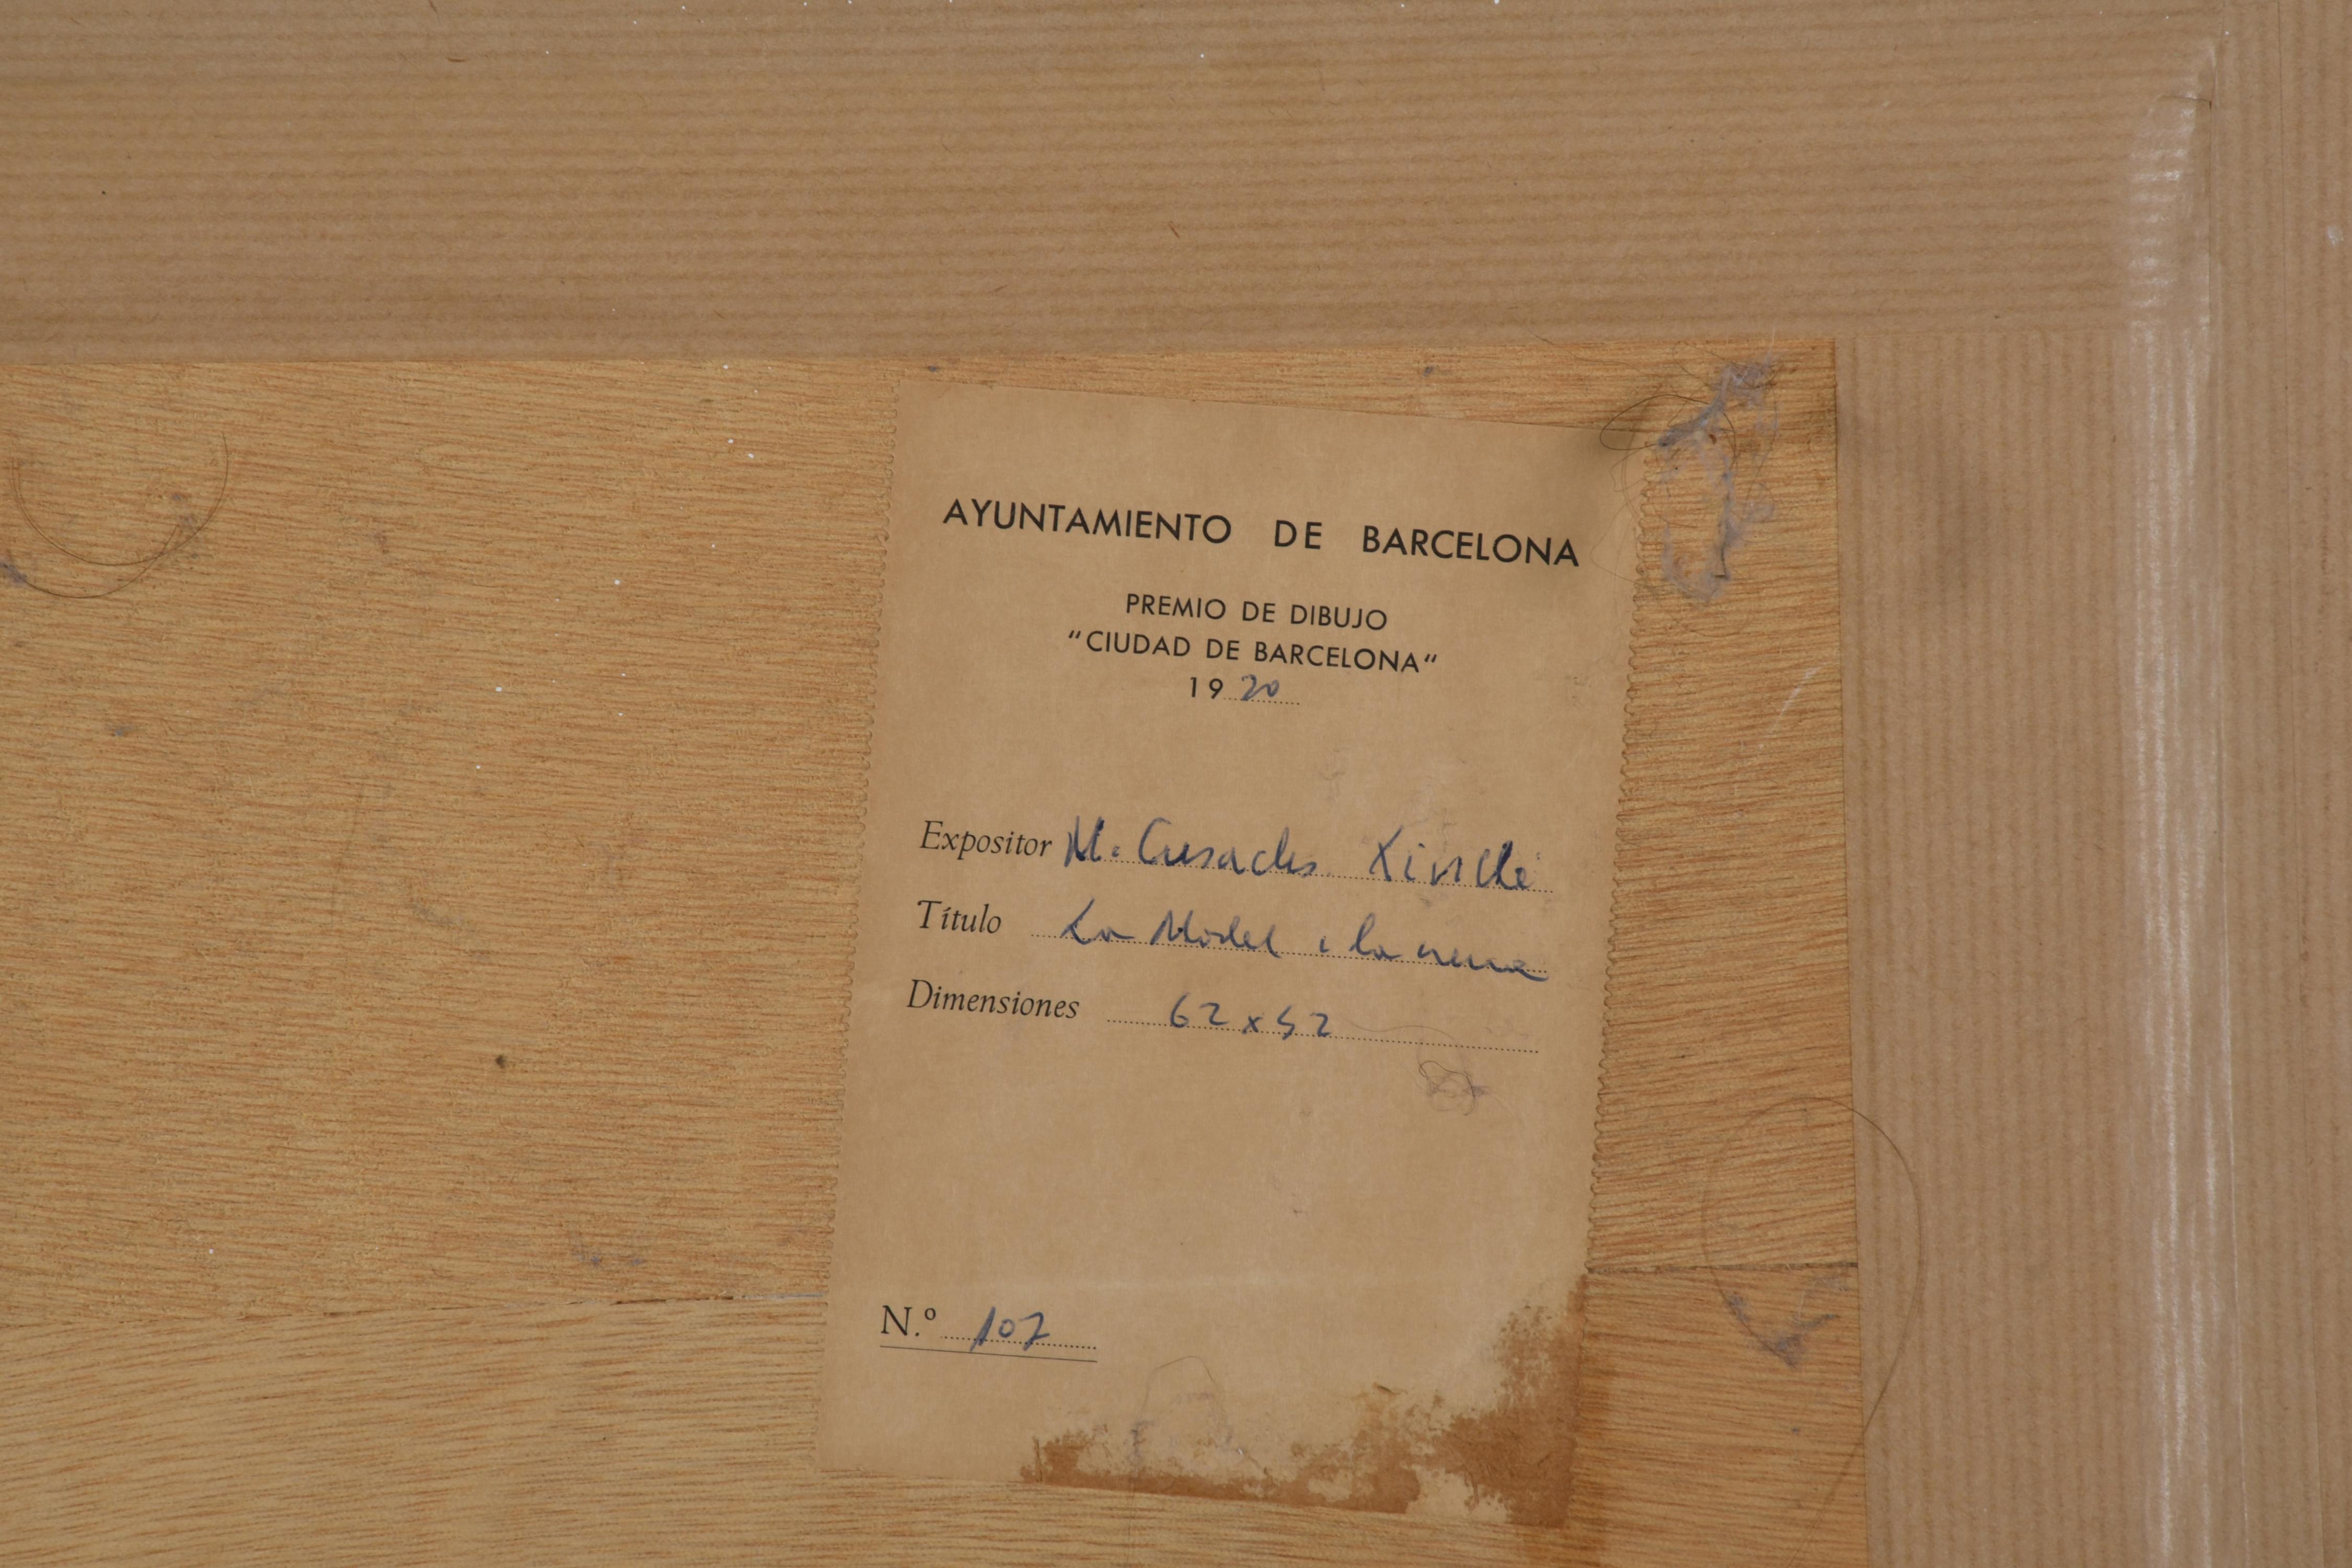 AYUNTAMIENTO DE BARCELONA
PREMIO DE DIBUJO
"CIUDAD DE BARCELONA"
19
Expositor M.
Título La Model i la nena
Dimensiones 62 x 52
N.º 107